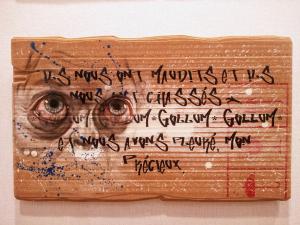 ILS NOUS ONT MAUDITS ET ILS
NOUS ONT CHASSÉS
GOLLUM * GOLLUM *
ET NOUS AVONS PLEURÉ, MON
PRÉCIEUX.